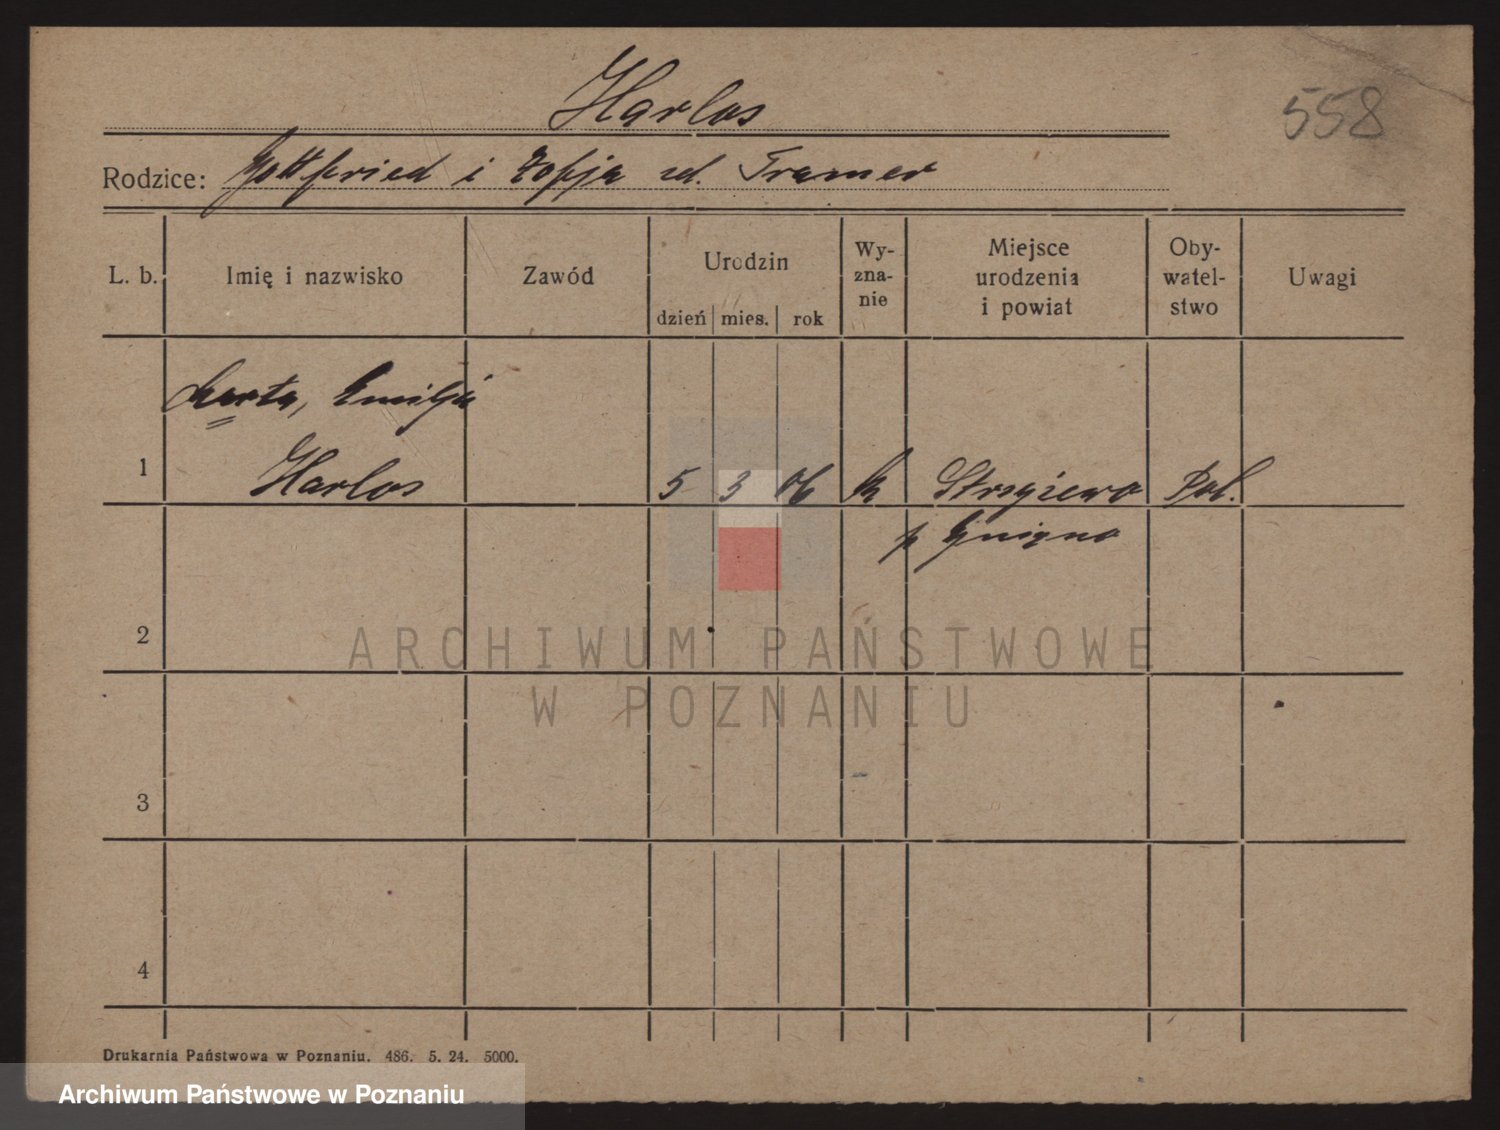 Harlos
558
Rodzice: Gottfried i Zofja zd. Tramer
L. b. Imię i nazwisko Zawód Urodzin Wy- Miejsce Oby- Uwagi
zna- urodzenia watel-
dzień mies. rok nie i powiat stwo
Marta, Emilja
1 Harlos 5 3 06 Strzyżewo Pol.
p Gniezno
2
ARCHIWUM PAŃSTWOWE
W POZNANIU
3
4
Drukarnia Państwowa w Poznaniu. 486. 5. 24. 5000.
Archiwum Państwowe w Poznaniu